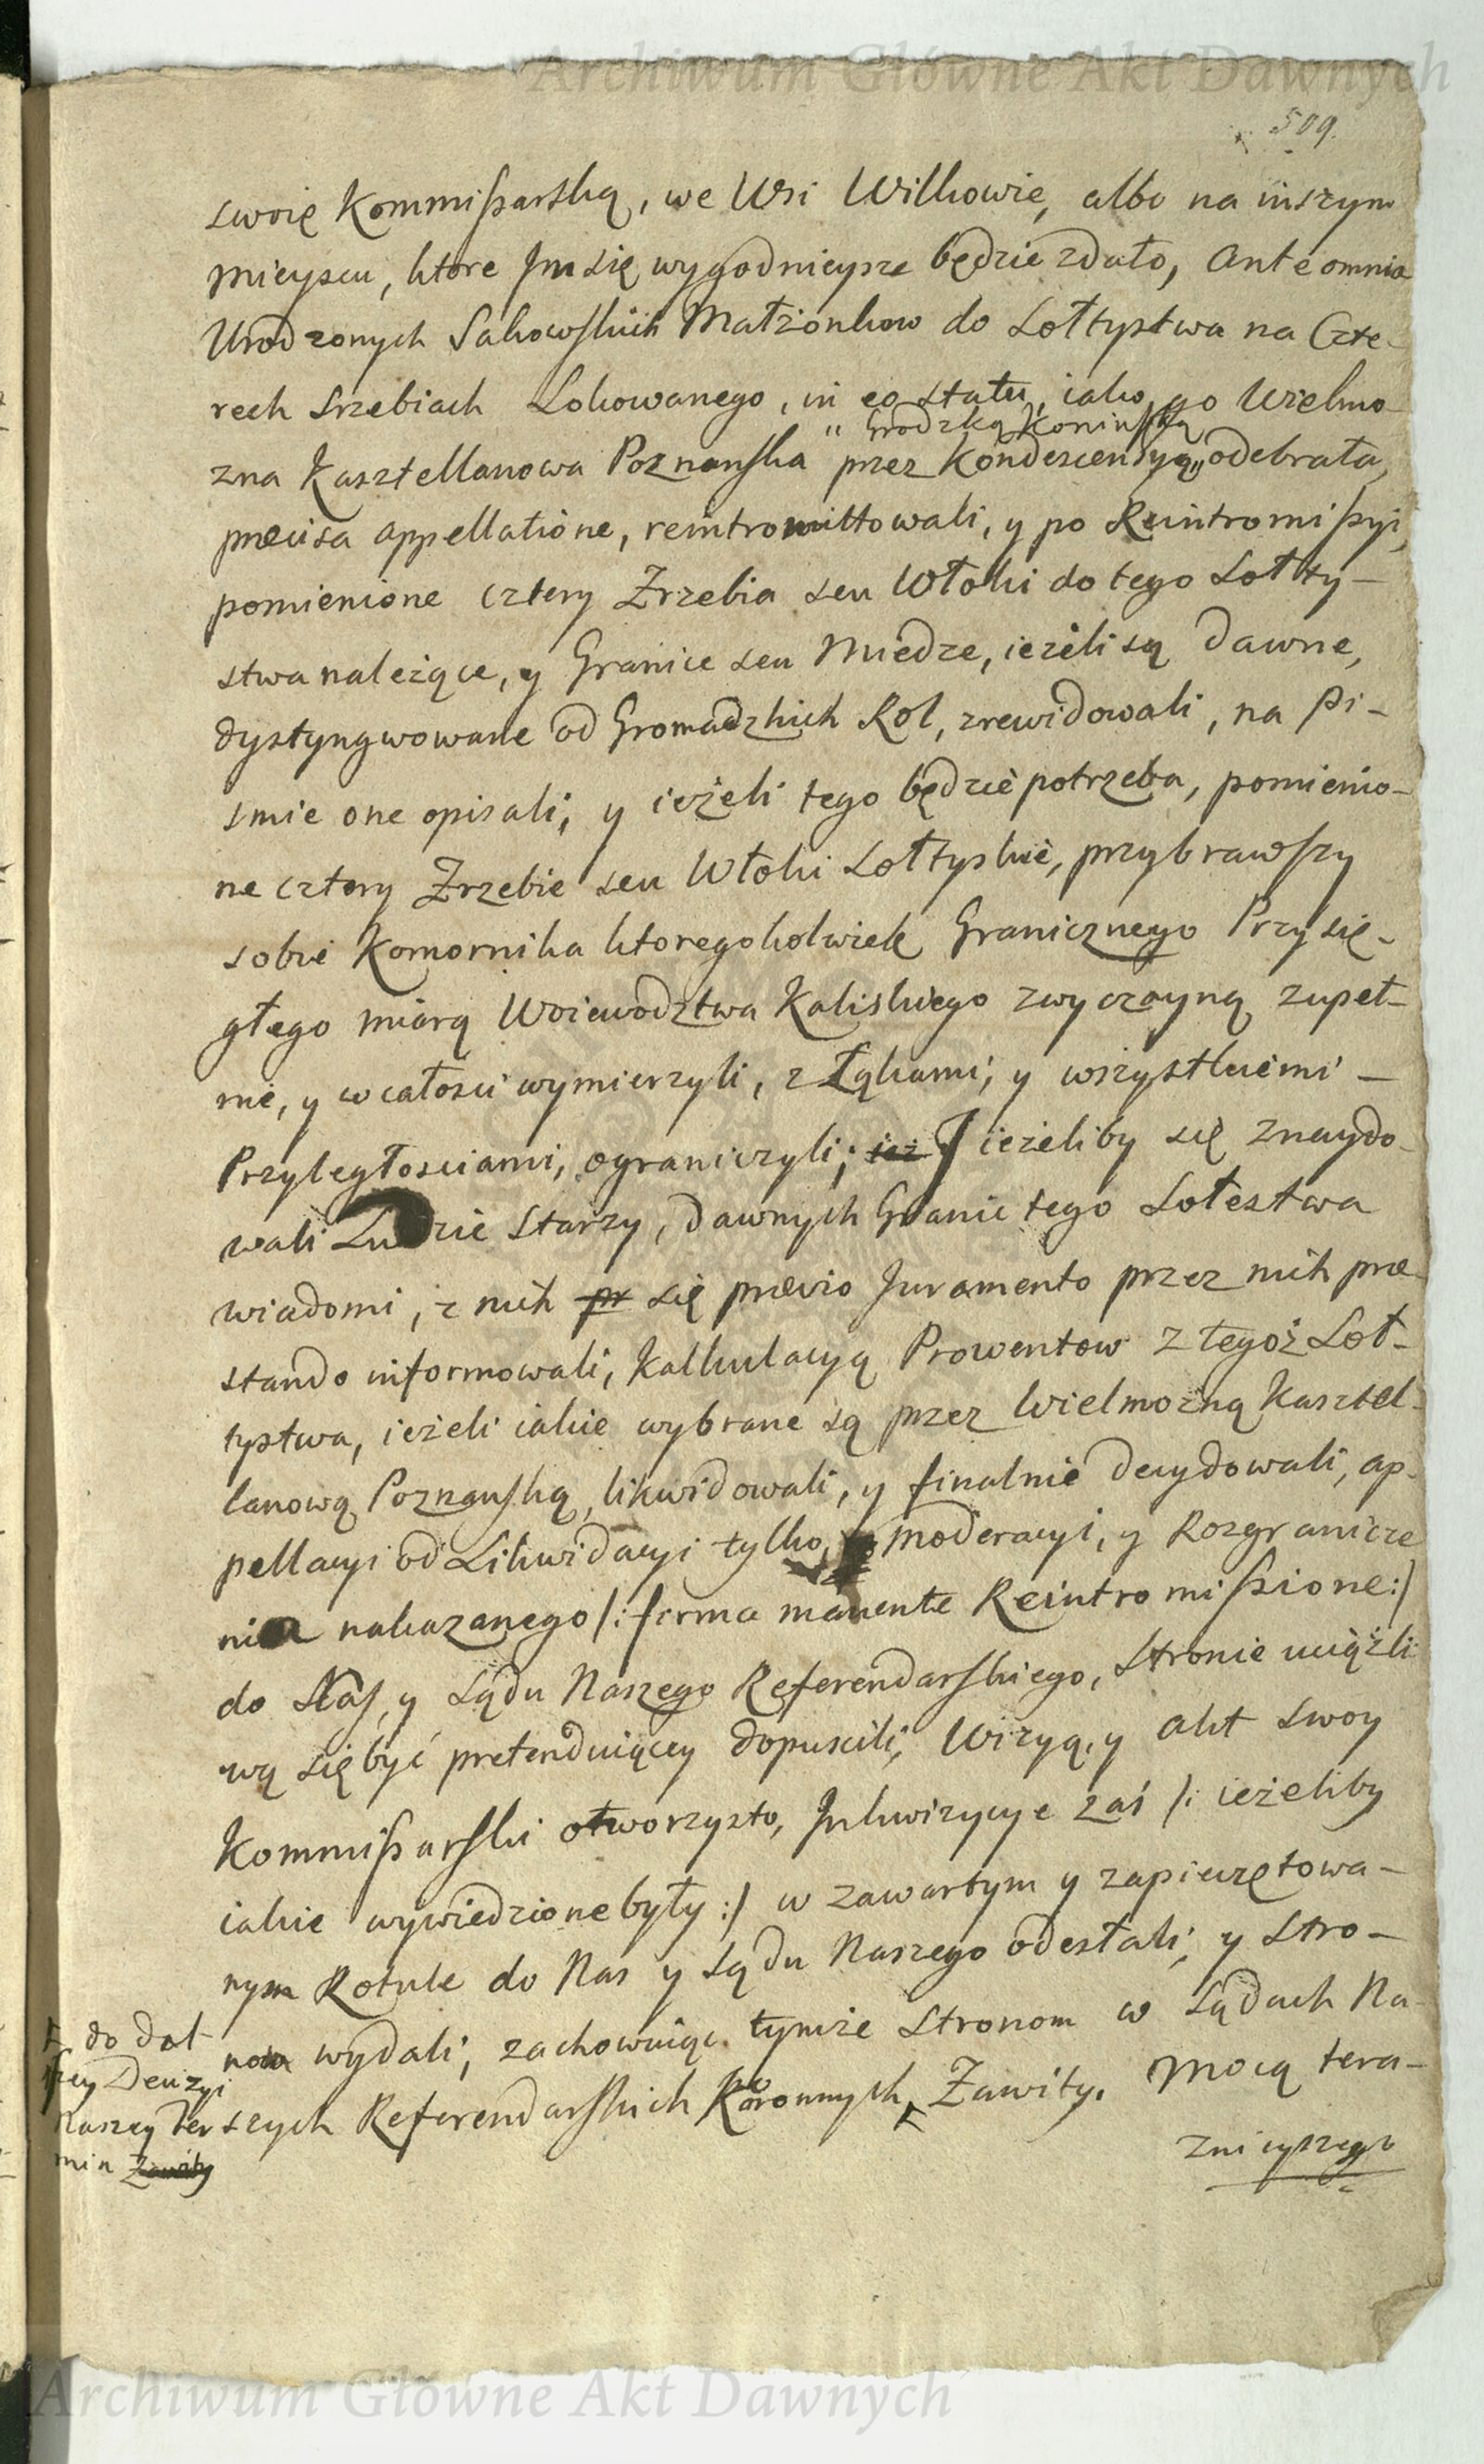 Archiwum Główne Akt Dawnych
509.
swoię Kommißarską, we Wsi Wilkowie, albo na inszym
mieyscu, ktore Im się wygodnieysze będzie zdało, Ante omnia
Urodzonych Sakowskich Małżonkow do Sołtystwa na Czte-
rech Srzebiach Lokowanego, in eo statu, iako go Wielmo-
" Grodzką Konińską
zna Kasztellanowa Poznanska przez Kondescensyą „ odebrała,
præcisa appellatione, reintromittowali, y po Reintromißyi,
pomienione cztery Zrzebia seu Włoki do tego Sołty-
stwa należące, y Granice seu Miedze, ieżeli są dawne,
dystyngwowane od Gromadzkich Rol, zrewidowali, na Pi-
smie one opisali, y ieżeli tego będzie potrzeba, pomienio-
ne cztery Zrzebie seu Włoki Sołtyskie, przybrawszy
sobie Komornika ktoregokolwiek Granicznego Przysię-
głego miarą Woiewodztwa Kaliskiego zwyczayną zupeł-
nie, y wcałosci wymierzyli, z Łąkami, y wszystkiemi -
Przyległosciami, ograniczyli; ież J ieżeliby się znaydo-
wali Ludzie Starzy, dawnych Granic tego Sołestwa
wiadomi, z nich pr się prævio Juramento przez nich præ-
stando informowali, Kalkulacyą Prowentow z tegoż Soł-
tystwa, ieżeli iakie wybrane są przez Wielmożną Kasztel-
lanową Poznanską, likwidowali, y finalnie decydowali, ap-
pellacyi od Likwidacyi tylko, moderacyi, y Rozgranicze
nia nakazanego /: firma manente Reintromißione :/
do Nas, y Sądu Naszego Referendarskiego, Stronie uciążli-
wą się być pretenduiącey dopuscili, Wizyą, y Akt Swoy
Kommißarski otworzysto, Inkwizycye zaś /: ieżeliby
iakie wywiedzione były :/ w zawartym y zapieczętowa-
nym Rotule do Nas y Sądu Naszego odesłali, y Stro-
nom wydali, zachowuiąc tymże Stronom w Sądach Na-
szych Referendarskich Koronnych, Zawity. Mocą tera-
znieyszego
do dal
szey Decyzyi
Naszey Ter
min Zawity
Archiwum Główne Akt Dawnych